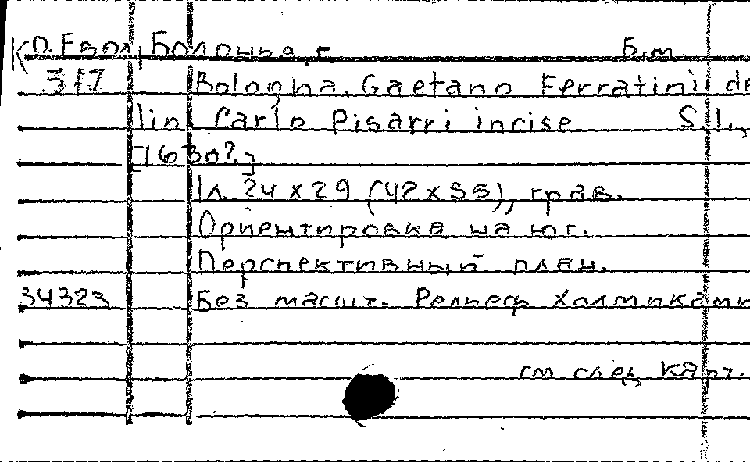 К О.Евол Болонья, г. Б.м
3/7 Bologna. Gaetano Ferratini de
lin Carlo Pisarri incise S.l.,
[1630?]
1л. 24 x 29 (42 x 55), грав.
Ориентировка на юг.
Перспективный план.
34323 Без масшт. Рельеф холмиками
см след карт.